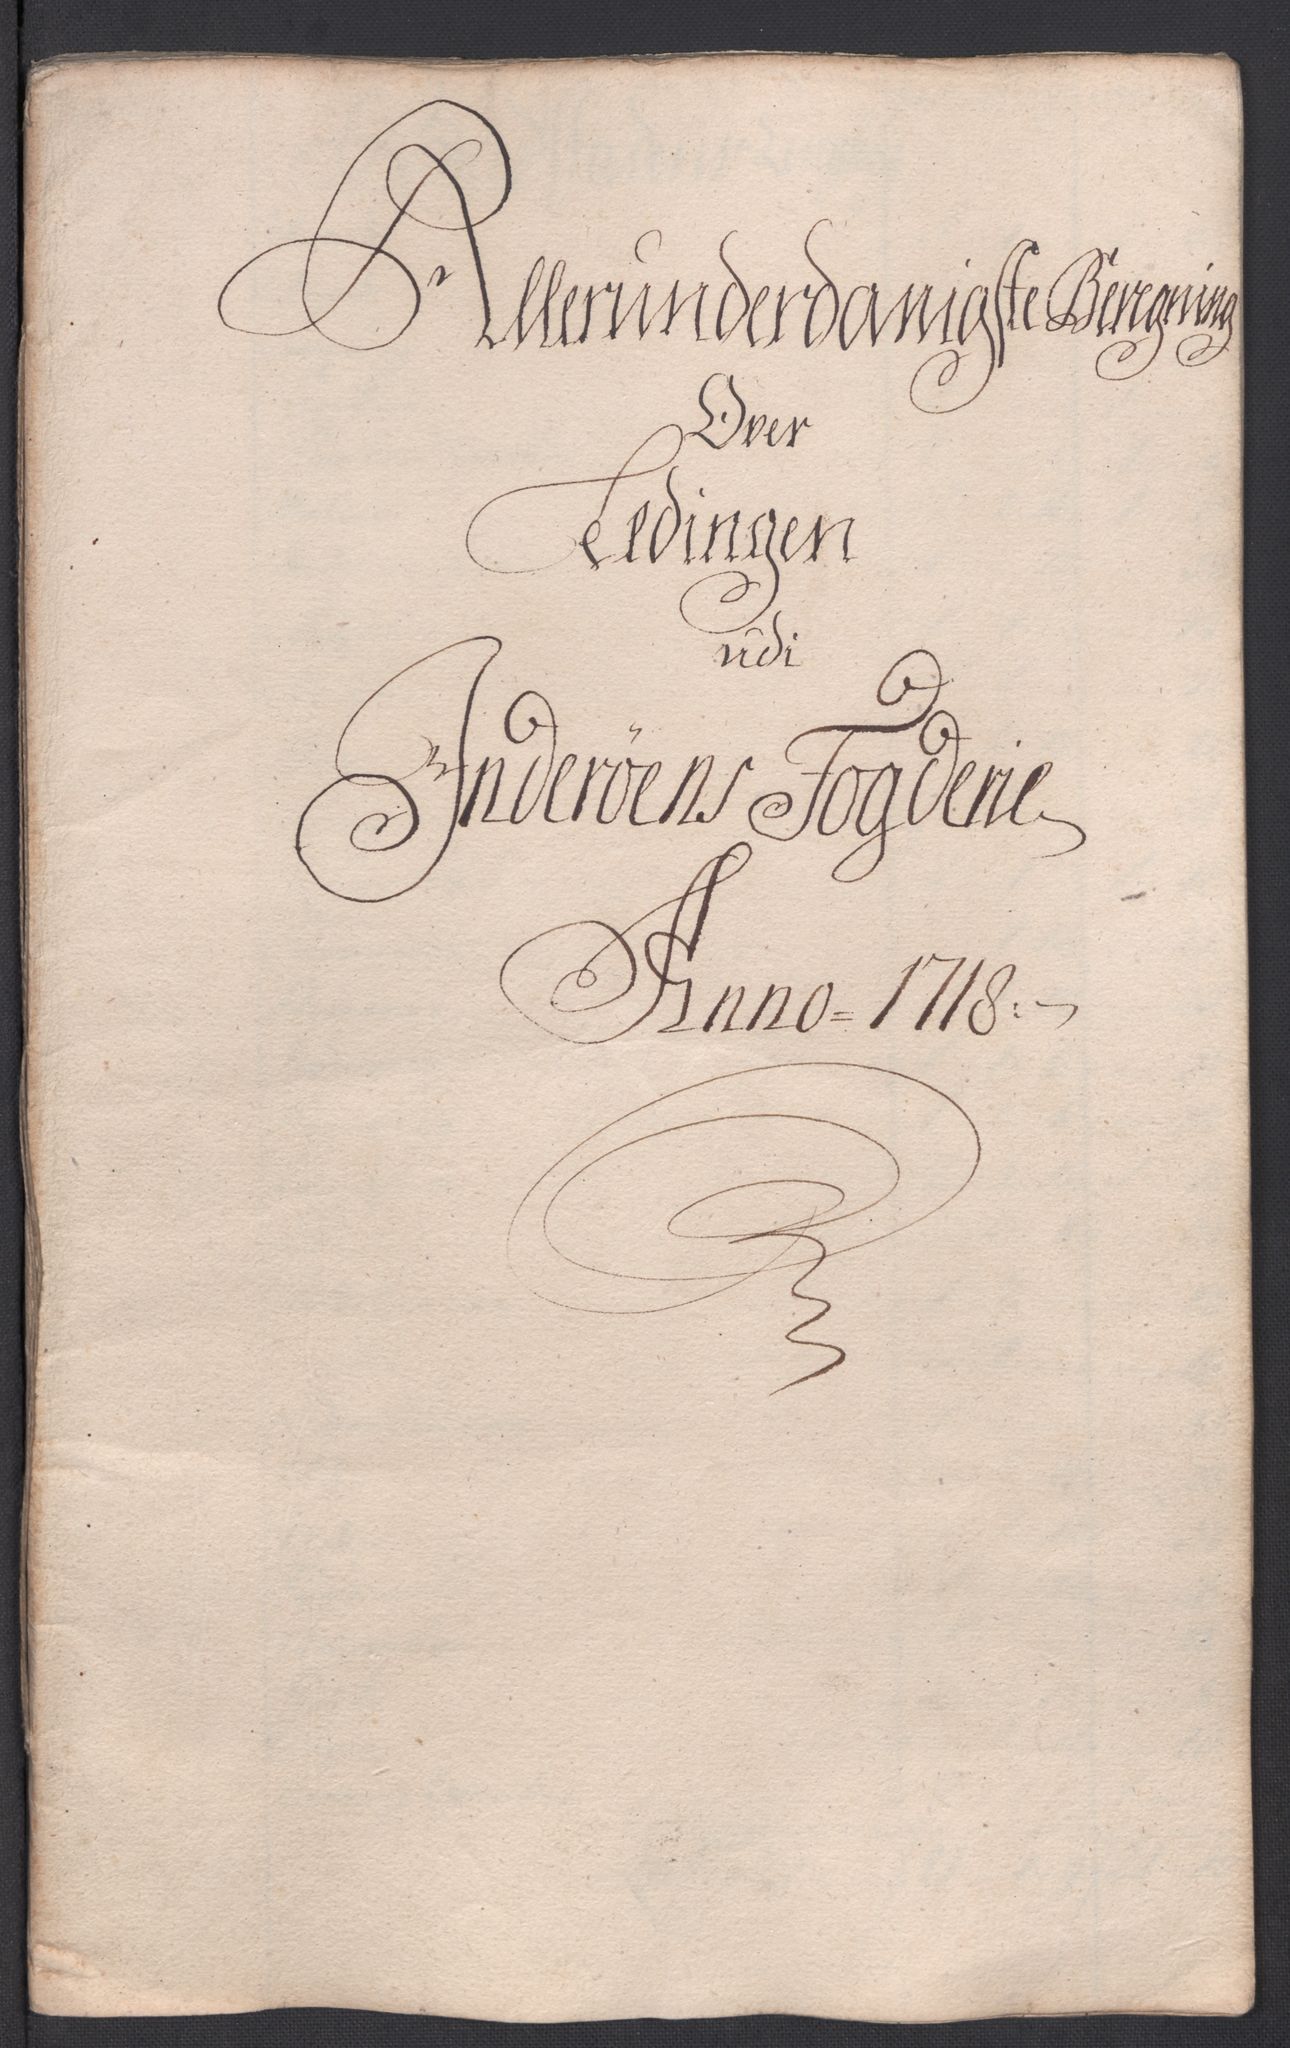 Allerunderdanigste Beregning
Over
Leedingen
udi
Inderöens Fogderie
Anno = 1718: